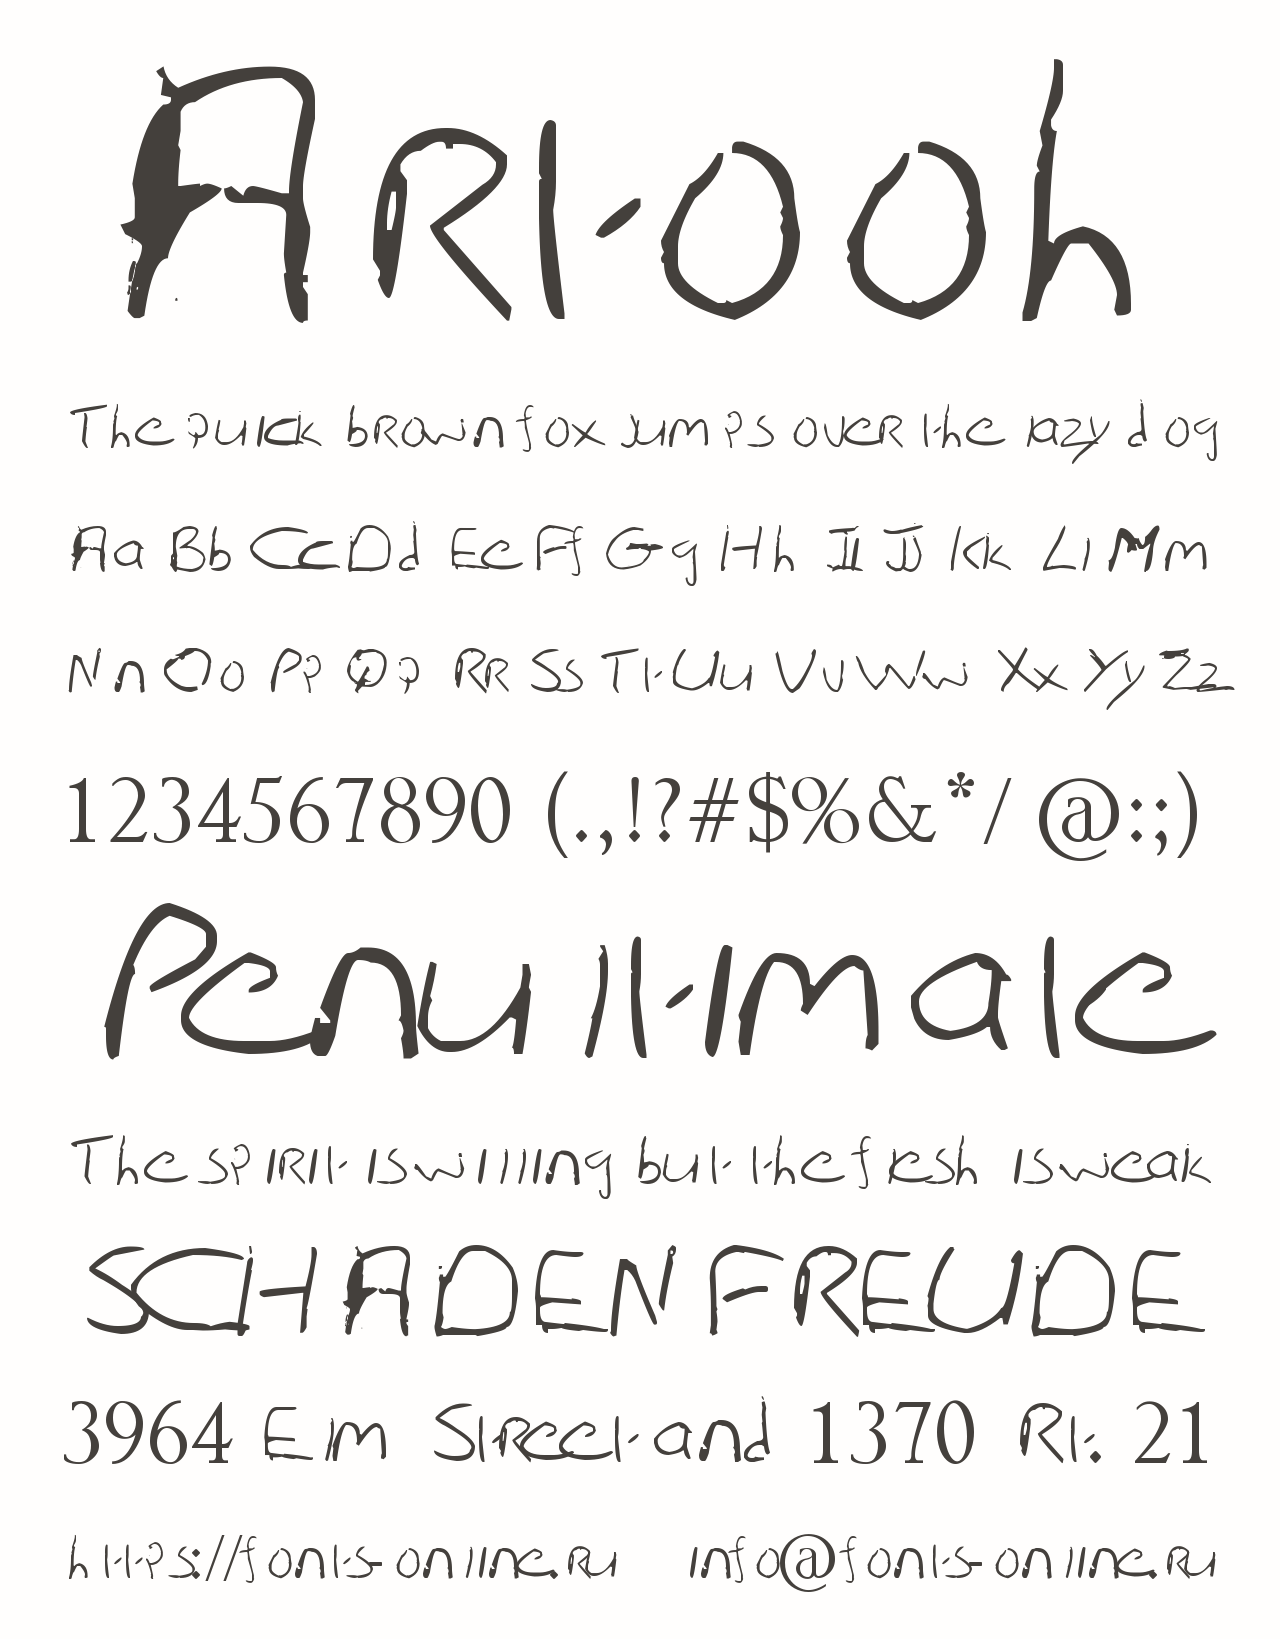 Aritooh
The quick brown fox jumps over the lazy dog
Aa Bb Cc Dd Ee Ff Gg Hh Ii Jj Kk Ll Mm
Nn Oo Pp Qq Rr Ss Tt Uu Vv Ww Xx Yy Zz
1234567890 (.,!?#$%&*/ @:;)
Penultimate
The spirit is willing but the flesh is weak
SCHADENFREUDE
3964 Elm Street and 1370 Rt. 21
https://fonts-online.ru info@fonts-online.ru